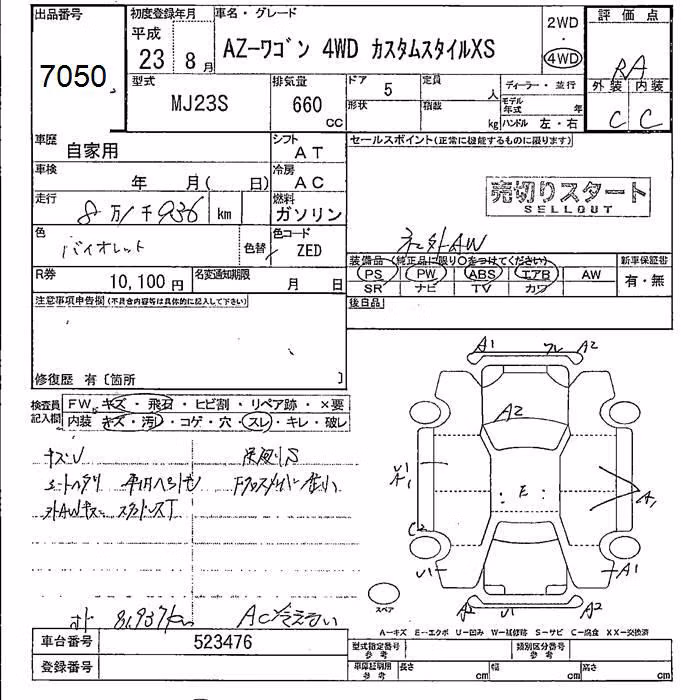 出品番号
7050
初度登録年月
平成
23 8月
車名・グレード
AZーワゴン 4WD カスタムスタイルXS
2WD
・
4WD
評価点
RA
外装 内装
C C
型式
MJ23S
排気量
660
CC
ドア
5
形状
定員
人
積載
kg
ディーラー・並行
モデル年式 年
ハンドル 左・右
車歴
自家用
シフト
AT
車検
年 月( 日)
冷房
AC
走行
8万1千936 km
燃料
ガソリン
色
バイオレット
色替
色コード
ZED
R券
10,100円
名変通知期限
月 日
セールスポイント(正常に機能するものに限ります)
売切りスタート
SELLOUT
社外AW
装備品 (純正品に限り○をつけてください)
PS PW ABS エアB AW
SR ナビ TV カワ
新車保証書
有・無
後日品
注意事項申告欄(不具合内容等は具体的に記入して下さい)
修復歴 有〔箇所 〕
検査員記入欄
FW キズ・飛石・ヒビ割・リペア跡・×要
内装 キズ・汚レ・コゲ・穴・スレ・キレ・破レ
キズU
外AWキズ
81,937km
AC冷えない
A1 A2
A2
E
A1
C2
U1
A1
A1
A2 U1 A2
スペア
A－キズ E－エクボ U－凹み W－補修跡 S－サビ C－腐食 XX－交換済
車台番号
523476
登録番号
型式指定番号
参考
類別区分番号
参考
車庫証明用
参考
長さ cm
幅 cm
高さ cm